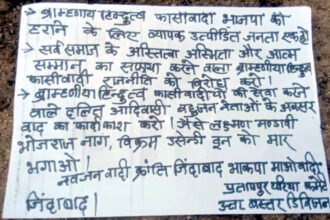 • ब्राम्हणीय हिन्दुत्व फासीवादी भाजपा को
हराने के लिए व्यापक उत्पीड़ित जनता एक हो
• सर्व समाज के अस्तित्व अस्मिता और आत्म
सम्मान का सफाया करने वाला ब्राम्हणीय हिन्दुत्व
फासीवादी राजनीति का विरोध करो।
• ब्राम्हणीय हिन्दुत्व फासीवादीयों की सेवा करने
वाले दलित आदिवासी बहुजन नेताओं के अवसर
वाद का पर्दाफाश करो। जैसे लक्ष्मण मण्डावी
भोजराज नाग, विक्रम उसेन्डी इन को मार
भगाओ।
नवजनवादी क्रांति जिंदाबाद भाकपा माओवादी
जिंदाबाद।
प्रतापपुर एरिया कमेटी
उत्तर बस्तर डिविजन